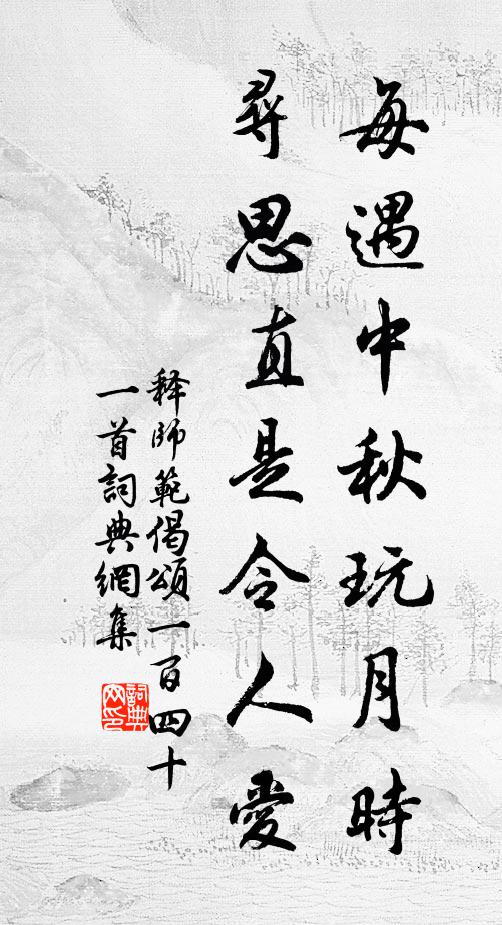 每遇中秋玩月時
尋思直是令人愛
释師範偈頌一百四十
一首詞典網集
詞典
网印